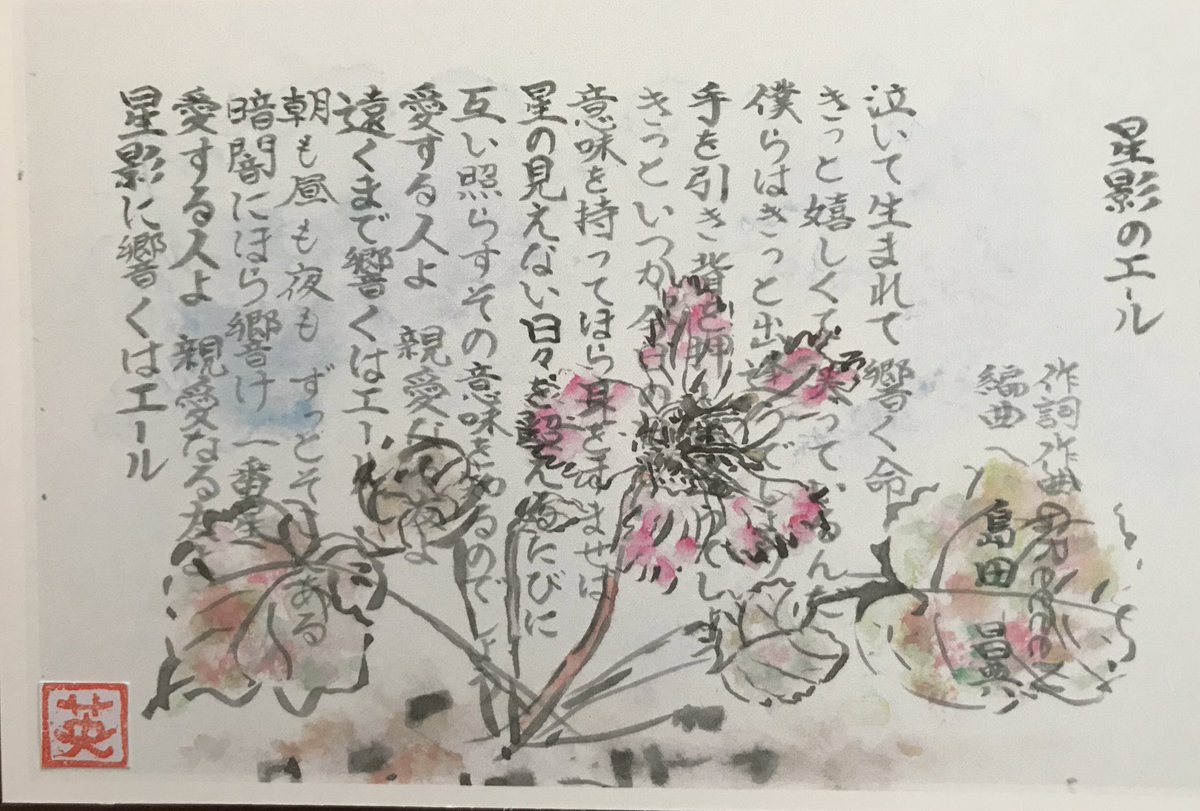 星影のエール
作詞作曲 GReeeeN
編曲 島田 昌英
泣いて生まれて 響く命
きっと嬉しくて 笑っているんだ
僕らはきっと出逢うのでしょう
手を引き背を押し でしょう
きっといつか今日の
意味を持ってほら耳をすませば
星の見えない日々を超えるたびに
互い照らすその意味を知るので
愛する人よ 親愛なる友よ
遠くまで響くはエール
朝も昼も夜も ずっとそ ある
暗闇にほら響け 一番星
愛する人よ 親愛なる友よ
星影に響くはエール
英